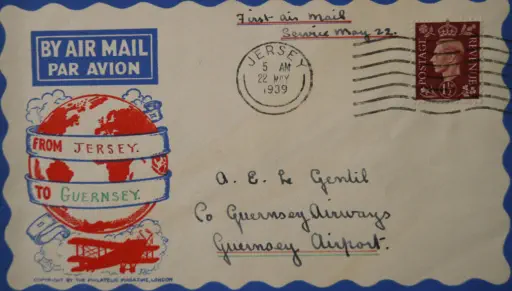 First air Mail
Service May 22.
BY AIR MAIL
PAR AVION
JERSEY
5 AM
22 MAY
1939
POSTAGE
REVENUE
1½
FROM JERSEY.
TO GUERNSEY.
A. E. Le Gentil
C/o Guernsey Airways
Guernsey Airport.
COPYRIGHT BY THE PHILATELIC MAGAZINE, LONDON